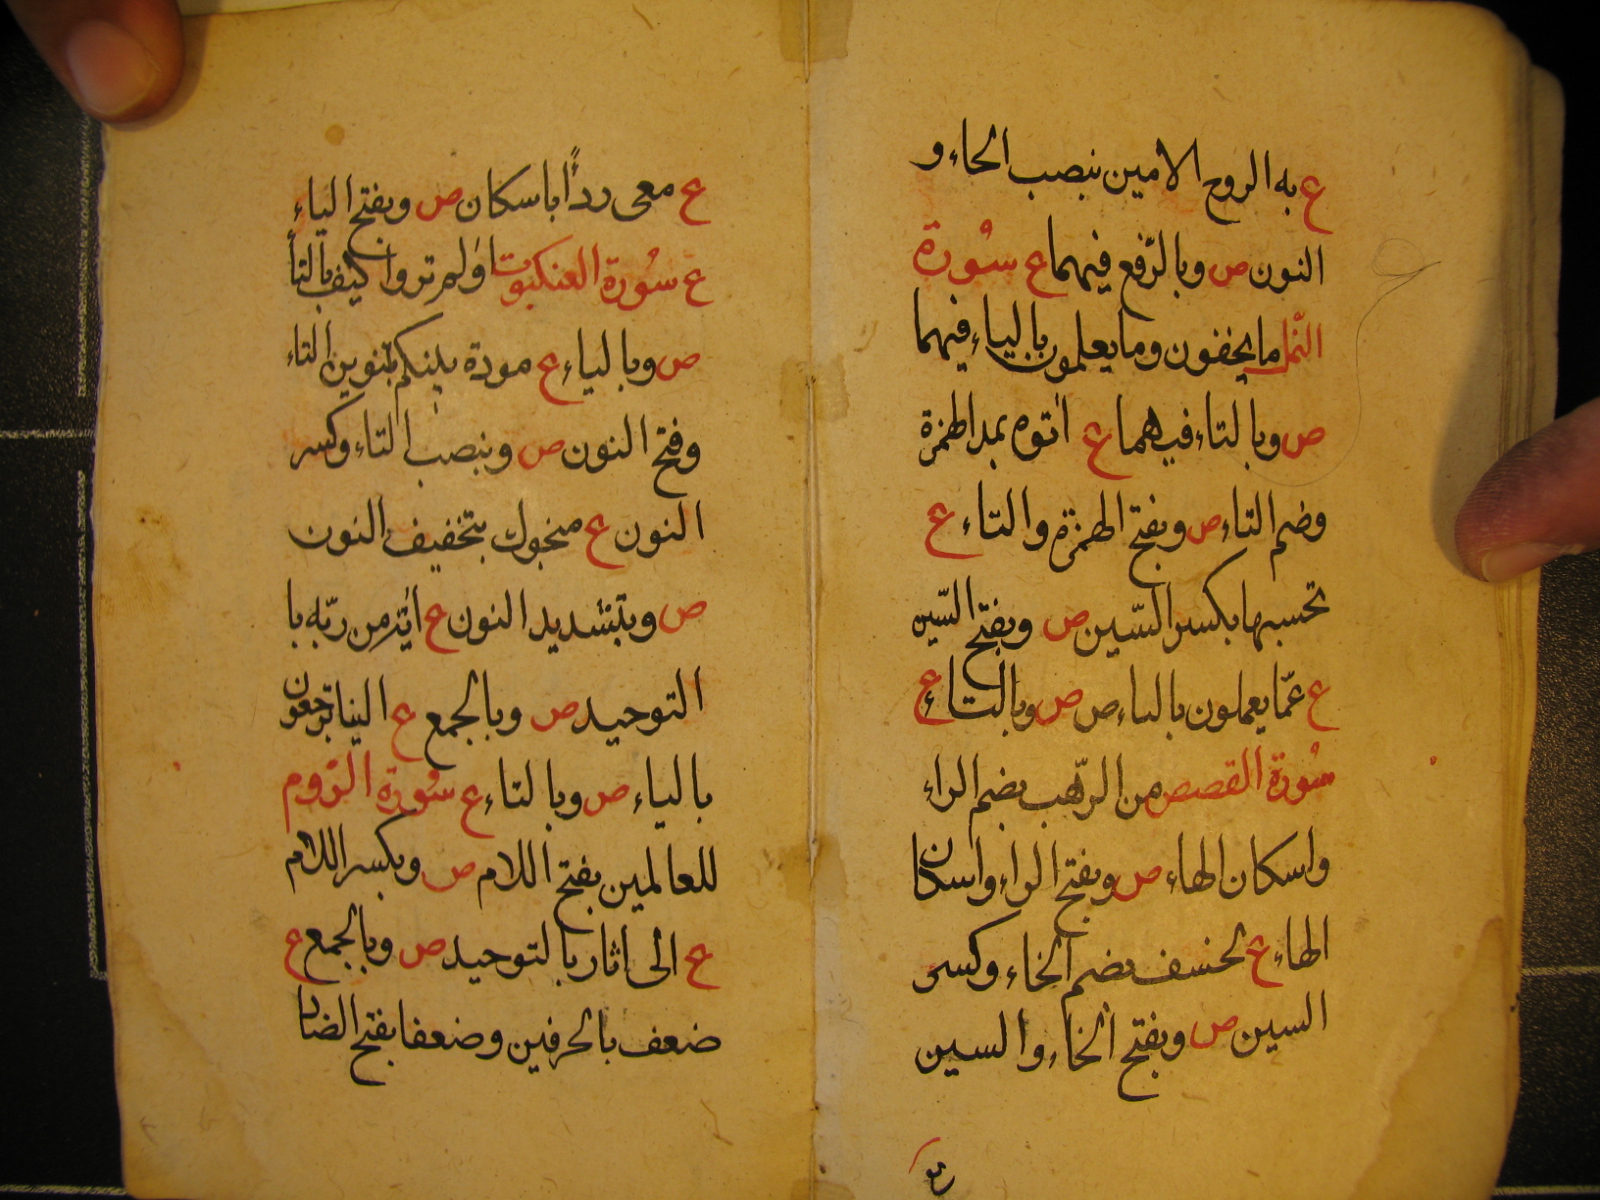 ع به الروح الامين بنصب الحاء و
النون ص وبالرّفع فيهما ع سُورة
النّمل ما يخفون وما يعلمون بالياء فيهما
ص وبالتاء فيهما ع اتوه بمد الهمزة
وضم التاء ص وبفتح الهمزة والتاء ع
تحسبها بكسر السّين ص وبفتح السّين
ع عمّا يعملون بالياء ص ص وبالتاء ع
سُورة القصص من الرّهب بضم الراء
واسكان الهاء ص وبفتح الراء واسكان
الهاء ع لخسف بضم الخاء وكسر
السين ص وبفتح الخاء والسين
ع معى ردًا باسكان ص وبفتح الياء
ع سُورة العنكبوت اولم تروا كيف بالتا
ص وبالياء ع مودة بينكم بتنوين التاء
وفتح النون ص وبنصب التاء وكسر
النون ع منجوك بتخفيف النون
ص وبتشديد النون ع اية من ربّه با
التوحيد ص وبالجمع ع الينا ترجعون
بالياء ص وبالتاء ع سُورة الرّوم
للعالمين بفتح اللام ص وبكسر اللام
ع الى اثار بالتوحيد ص وبالجمع ع
ضعف بالحرفين وضعفا بفتح الضاد